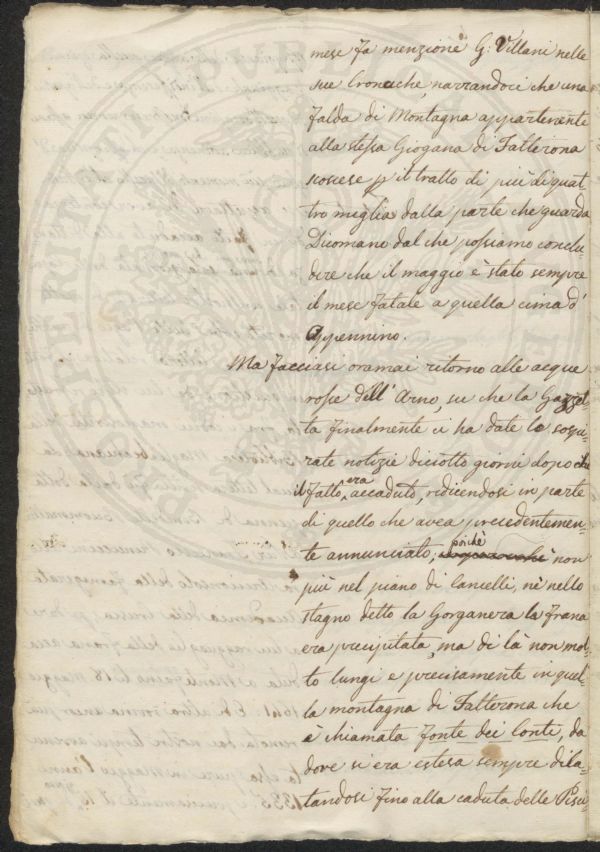 mese fa menzione G. Villani nelle
sue Cronache, narrandoci che una
falda di Montagna appartenente
alla stessa Giogana di Falterona
scoscese p il tratto di più di quat
tro miglia dalla parte che guarda
Dicomano dal che possiamo conclu-
dere che il maggio è stato sempre
il mese fatale a quella cima d'
Appennino.
Ma facciasi oramai ritorno alle acque
rosse dell' Arno, su che la Gazzet-
ta finalmente ci ha date le sospi-
rate notizie diciotto giorni dopo che
il fatto era accaduto, ridicendosi in parte
di quello che avea precedentemen-
te annunciato; poichè non
più nel piano di Cancelli, nè nello
stagno detto la Gorganera la frana
era precipitata, ma di là non mol-
to lungi e precisamente in quel-
la montagna di Falterona che
è chiamata Fonte dei Conti, da
dove si era estesa sempre dila-
tandosi fino alla caduta delle Pisci